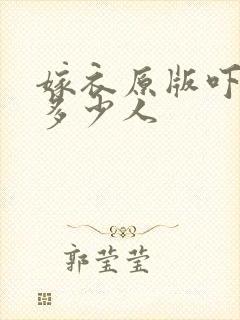 嫁衣原版吓
多少人
郭莹莹